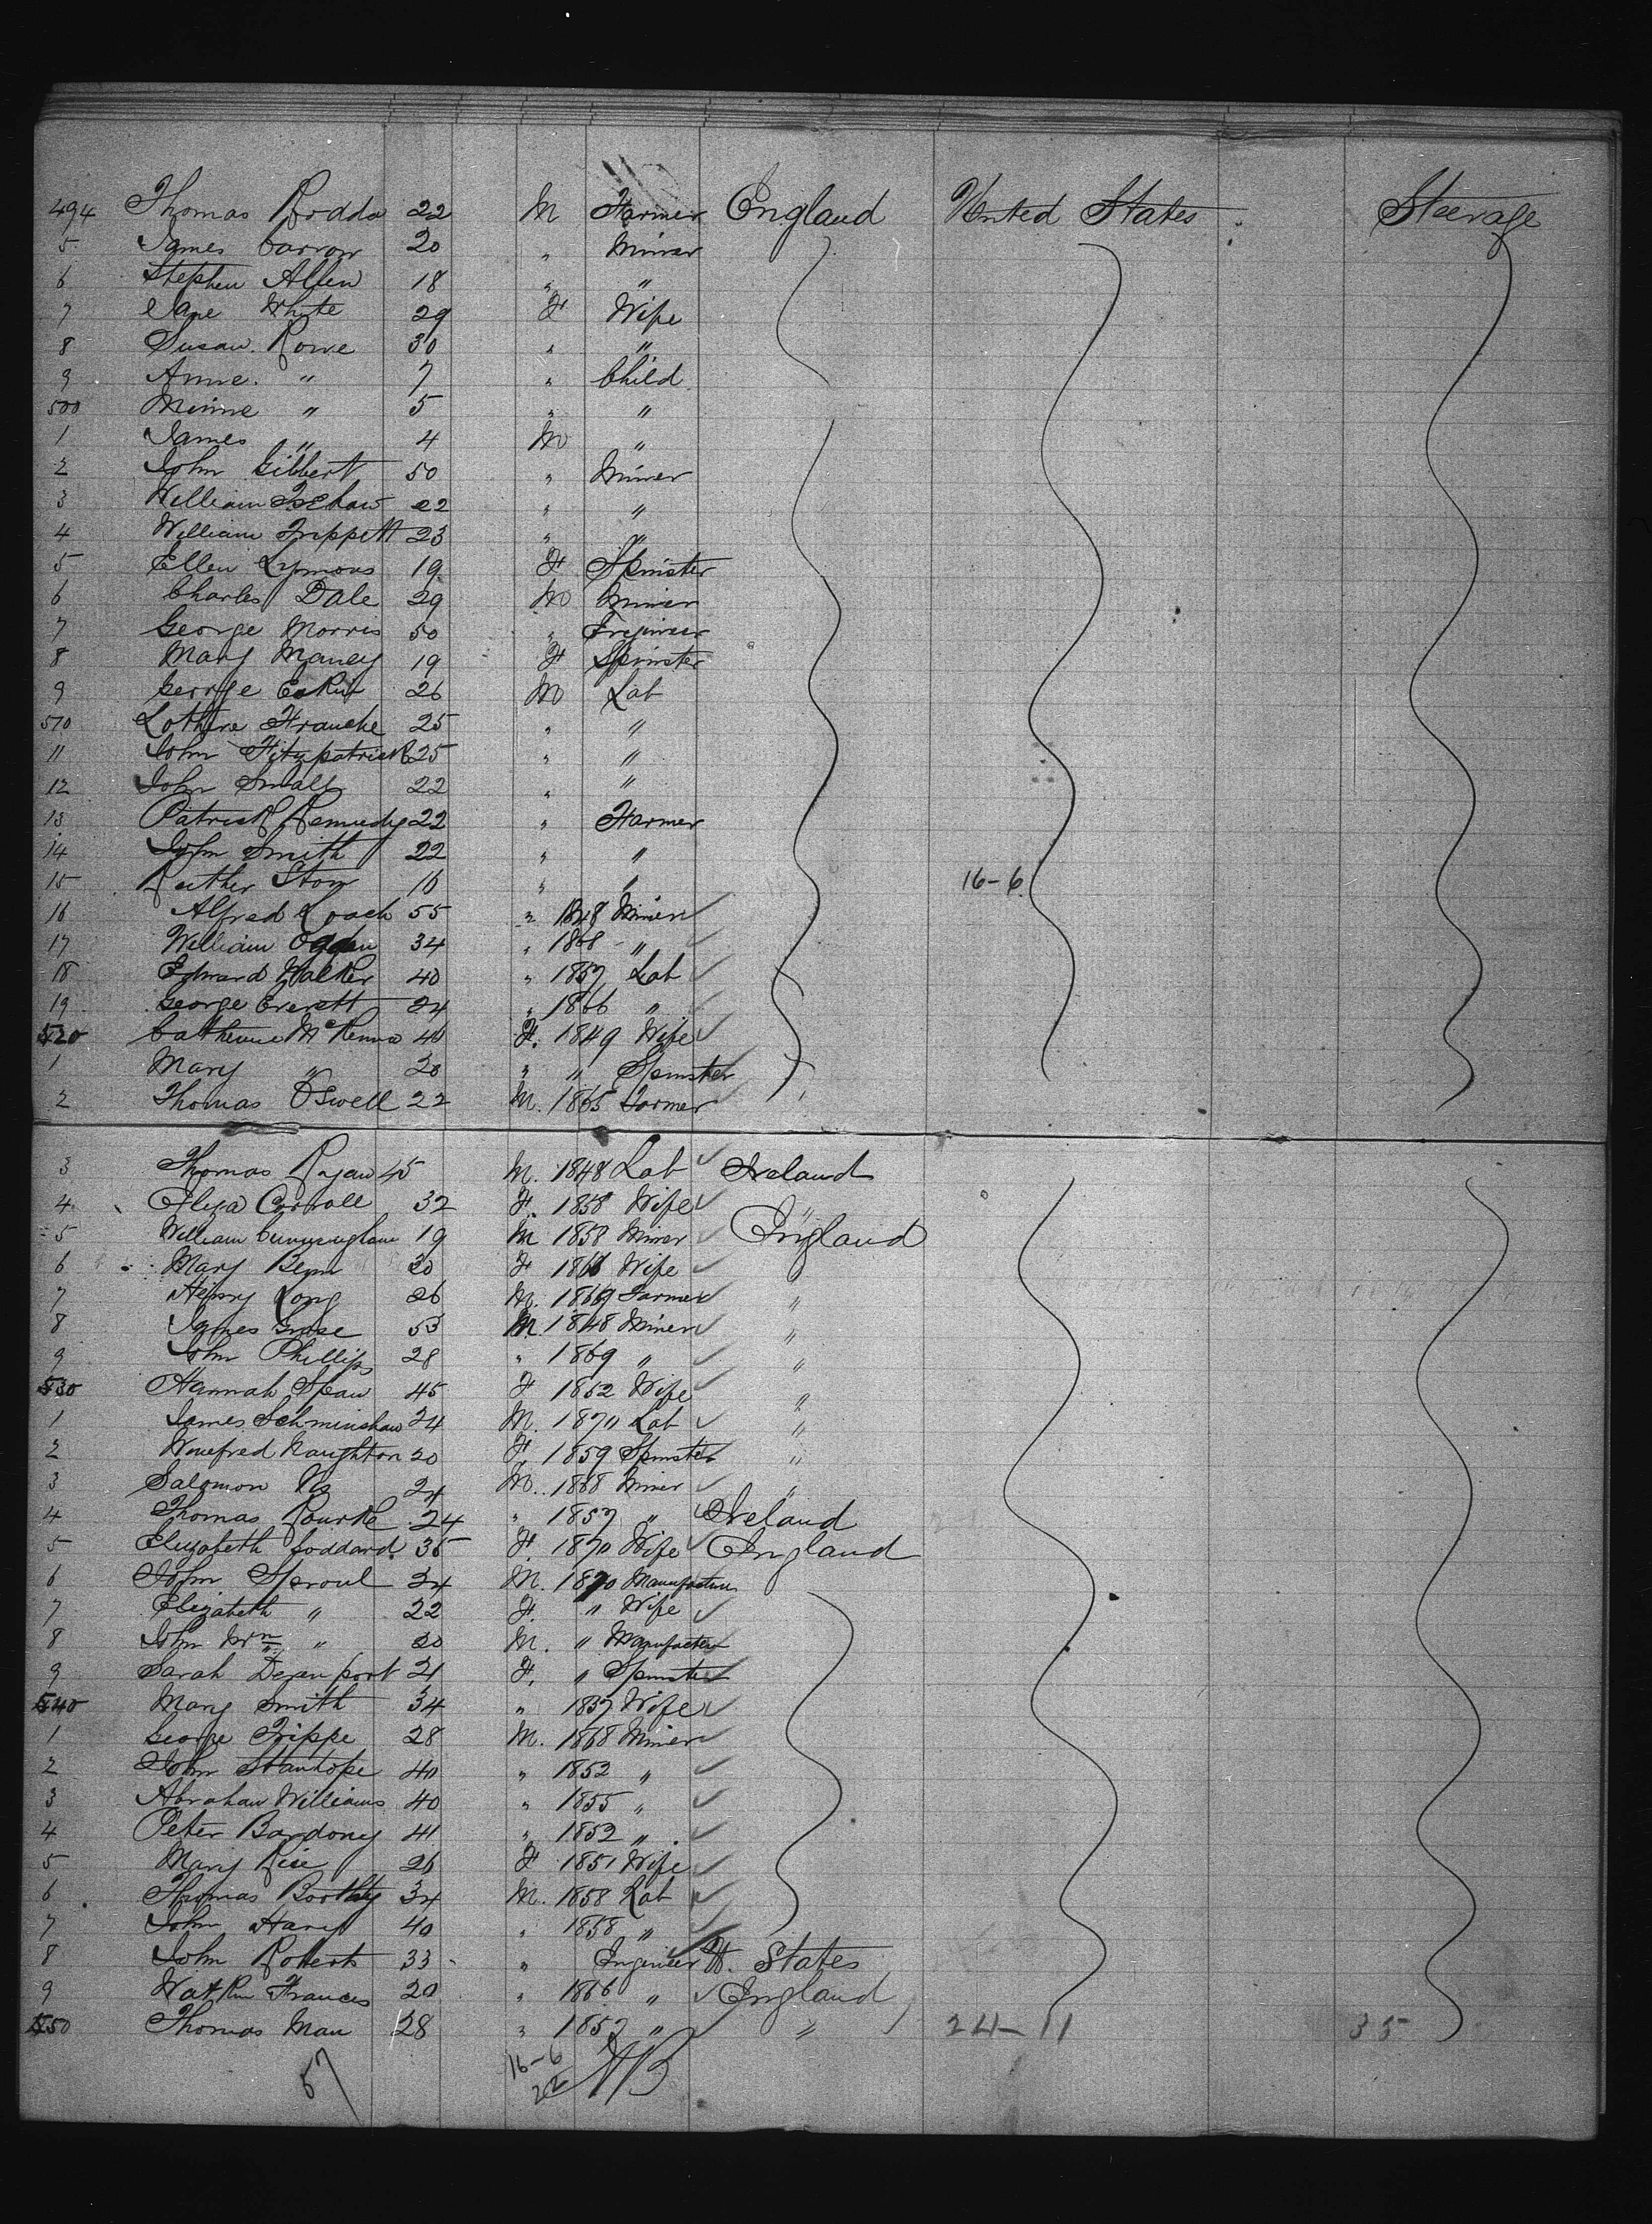 494 Thomas Rodda 22 M Farmer England United States Steerage
5 James Carrow 20 " Miner
6 Stephen Allen 18 " "
7 Jane Whyte 29 F Wife
8 Susan Rowe 30 " "
9 Annie " 7 " Child
500 Minnie " 5 " "
1 James " 4 M "
2 John Gilbert 50 " Miner
3 William 22 " "
4 William Trippett 23 " "
5 Ellen Lymons 19 F Spinster
6 Charles Dale 29 M Miner
7 George Morris 50 " Engineer
8 Mary Maney 19 F Spinster
9 George Eakin 26 M Lab
510 Francke 25 " "
11 John Fitzpatrick 25 " "
12 John Small 22 " "
13 Patrick Kennedy 22 " Farmer
14 John Smith 22 " "
15 Stone 16 " " 16-6
16 Alfred Loach 55 " 1848 Miner
17 William Ogden 34 " 1868 "
18 Edward Walker 40 " 1857 Lab
19 George Everett 24 " 1866 "
520 Catherine McKenna 40 F. 1849 Wife
1 Mary " 20 " " Spinster
2 Thomas Oswell 22 M. 1865 Farmer
3 Thomas Ryan 45 M. 1848 Lab Ireland
4 Eliza Carroll 32 F. 1858 Wife "
5 William Cunningham 19 M 1858 Miner England
6 Mary 30 F Wife "
7 Henry Long 26 M. 1869 Farmer "
8 James Grose 53 M. 1848 Miner "
9 John Phillips 28 " 1869 " "
530 Hannah Spaw 45 F 1852 Wife "
1 James Schminshaw 24 M. 1870 Lab "
2 Winefred Naughton 20 F. 1859 Spinster "
3 Salomon 24 M. 1868 Miner "
4 Thomas Rourke 24 " 1857 " Ireland
5 Elizabeth Goddard 35 F. 1870 Wife England
6 John Sproul 34 M. 1870 Manufacturer
7 Elizabeth " 22 F. " Wife
8 John Wm " 20 M. " Manufacturer
9 Sarah Devenport 21 F. " Spinster
540 Mary Smith 34 " 1857 Wife
1 George Trippe 28 M. 1868 Miner
2 John Stanhope 40 " 1852 "
3 Abraham Williams 40 " 1855 "
4 Peter Bardony 41 " 1852 "
5 Mary Rise 26 F 1851 Wife
6 Thomas 34 M. 1858 Lab
7 John Harry 40 " 1858 "
8 John Roberts 33 " Engineer U. States
9 Watkin Frances 20 " 1866 " England
550 Thomas Man 28 " 1852 " " 24-11 35
57 16-6
22